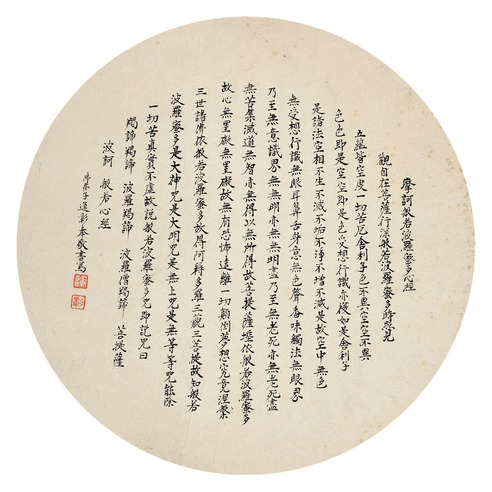 摩訶般若波羅蜜多心經
觀自在菩薩行深般若波羅蜜多時照見
五蘊皆空度一切苦厄舍利子色不異空空不異
色色即是空空即是色受想行識亦復如是舍利子
是諸法空相不生不滅不垢不淨不增不減是故空中無色
無受想行識無眼耳鼻舌身意無色聲香味觸法無眼界
乃至無意識界無無明亦無無明盡乃至無老死亦無老死盡
無苦集滅道無智亦無得以無所得故菩提薩埵依般若波羅蜜多
故心無罣礙無罣礙故無有恐怖遠離一切顛倒夢想究竟涅槃
三世諸佛依般若波羅蜜多故得阿耨多羅三藐三菩提故知般若
波羅蜜多是大神咒是大明咒是無上咒是無等等咒能除
一切苦真實不虛故說般若波羅蜜多咒即說咒曰
揭諦揭諦 波羅揭諦 波羅僧揭諦 菩提薩
婆訶 般若心經
弟子 敬書